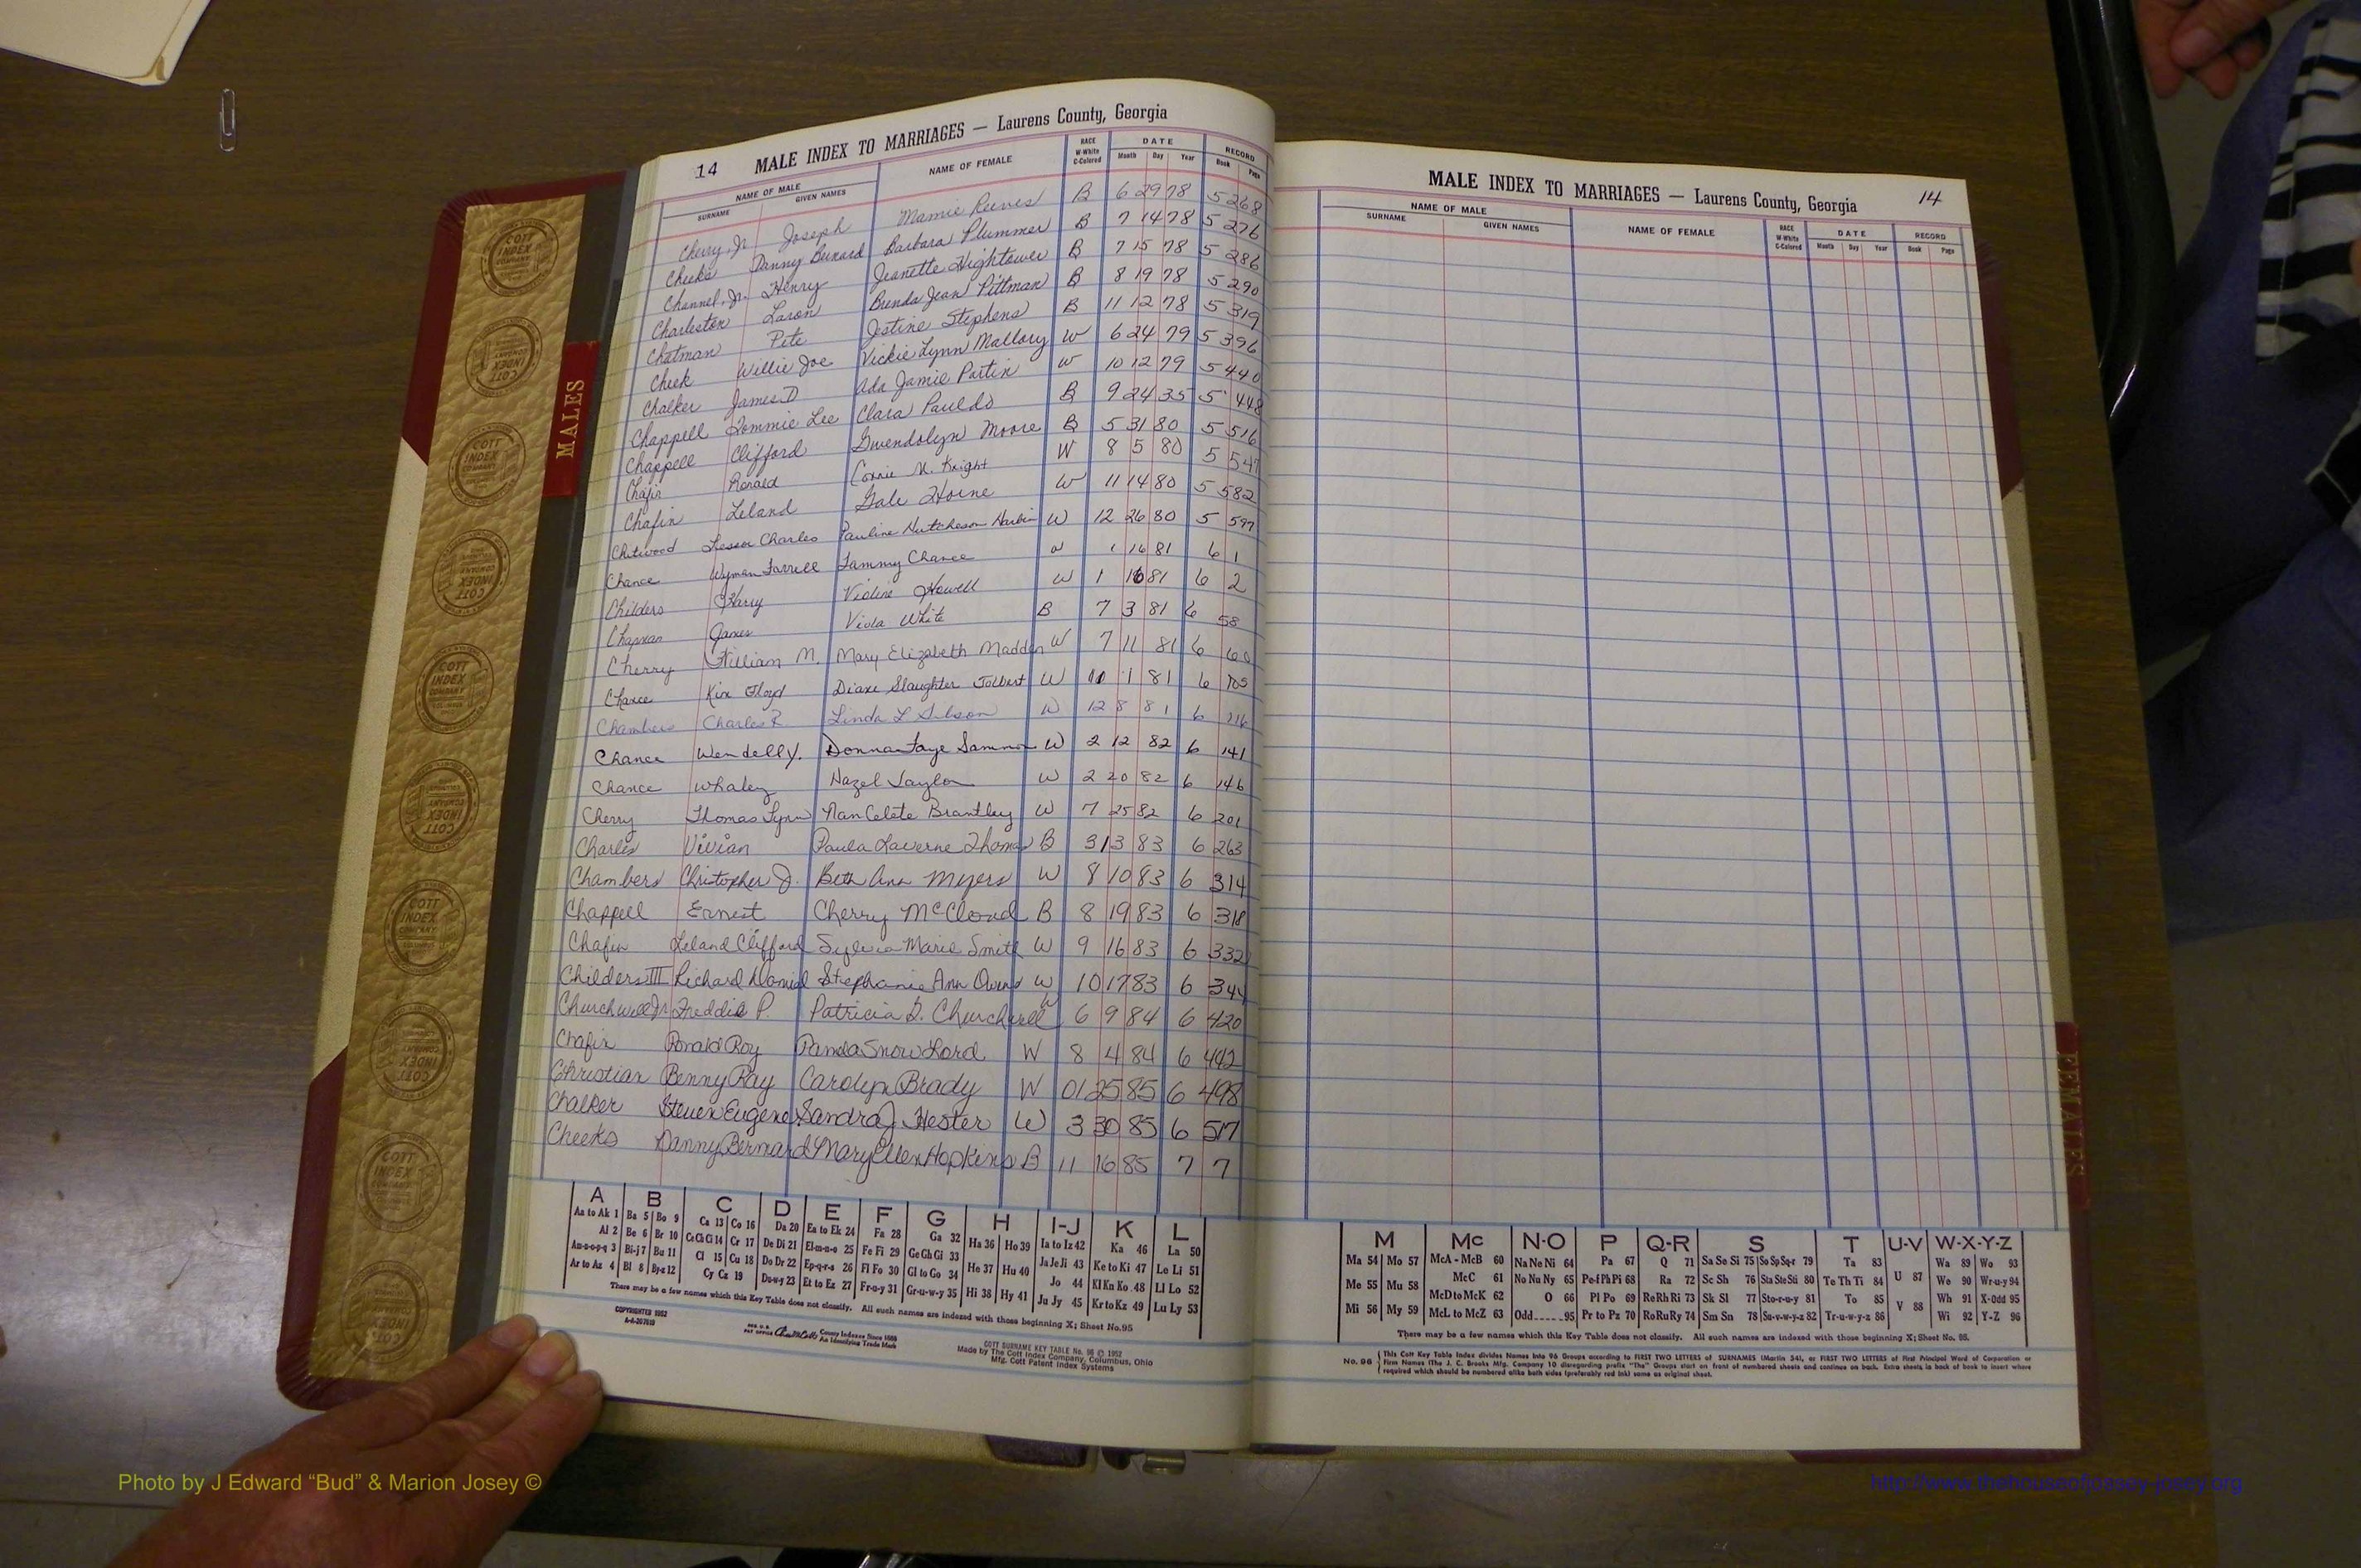 14 MALE INDEX TO MARRIAGES — Laurens County, Georgia
NAME OF MALE NAME OF FEMALE RACE W-White C-Colored DATE RECORD
SURNAME GIVEN NAMES Month Day Year Book Page
Cherry, Jr. Joseph Mamie Reeves B 6 29 78 5 268
Cheeks Danny Benard Barbara Plummer B 7 14 78 5 276
Channel, Jr. Henry Jeanette Hightower B 7 15 78 5 286
Charleston Laron Brenda Jean Pittman B 8 19 78 5 290
Chatman Pete Jestine Stephens B 11 12 78 5 319
Cheek Willie Joe Vickie Lynn Mallory W 6 24 79 5 396
Chalker James D Ada Jamie Partin W 10 12 79 5 440
Chappell Tommie Lee Clara Pauldo B 9 24 35 5 448
Chappell Clifford Gwendolyn Moore B 5 31 80 5 516
Chafin Ronald Connie M. Knight W 8 5 80 5 547
Chafin Leland Gale Horne W 11 14 80 5 582
Chitwood Charles Pauline Hutcheson W 12 26 80 5 597
Chance Wyman Farrell Tammy Chance W 1 16 81 6 1
Childers Harry Violine Howell W 1 16 81 6 2
Chapman James Viola White B 7 3 81 6 58
Cherry William M. Mary Elizabeth Madden W 7 11 81 6 60
Chance Kim Floyd Diane Slaughter Tolbert W 10 1 81 6 105
Chambers Charles R. Linda L W 12 8 81 6 116
Chance Wendell Y. Donna Faye Sammon W 2 12 82 6 141
Chance Whaley Hazel Taylor W 2 20 82 6 146
Cherry Thomas Lynn Nan Celete Brantley W 7 25 82 6 201
Charles Vivian Paula Laverne Thomas B 3 13 83 6 263
Chambers Christopher J. Beth Ann Myers W 8 10 83 6 314
Chappell Ernest Cherry McCloud B 8 19 83 6 318
Chafin Leland Clifford Sylvia Marie Smith W 9 16 83 6 332
Childers III Richard Daniel Stephanie Ann Owens W 10 17 83 6 344
Churchwell Jr Freddie P. Patricia D. Churchwell W 6 9 84 6 420
Chafin Ronald Roy Panda Snow Lord W 8 4 84 6 442
Christian Benny Ray Carolyn Brady W 01 25 85 6 498
Chalker Steven Eugene Sandra J Hester W 3 30 85 6 517
Cheeks Danny Bernard Mary Ellen Hopkins B 11 16 85 7 7
A B C D E F G H I-J K L
Aa to Ak 1 Ba 5 Bo 9 Ca 13 Co 16 Da 20 Ea to Ek 24 Fa 28 Ga 32 Ha 36 Ho 39 Ia to Iz 42 Ka 46 La 50
Al 2 Be 6 Br 10 Ce Ch Ci 14 Cr 17 De Di 21 El-m-n-o 25 Fe Fi 29 Ge Gh Gi 33 He 37 Hu 40 Ja Je Ji 43 Ke to Ki 47 Le Li 51
Am-n-o-p-q 3 Bi-j 7 Bu 11 Cl 15 Cu 18 Do Dr 22 Ep-q-r-s 26 Fl Fo 30 Gl to Go 34 Hi 38 Hy 41 Jo 44 Kl Kn Ko 48 Ll Lo 52
Ar to Az 4 Bl 8 By-z 12 Cy Cz 19 Du-w-y 23 Et to Ez 27 Fr-u-y 31 Gr-u-w-y 35 Ju Jy 45 Kr to Kz 49 Lu Ly 53
There may be a few names which this Key Table does not classify. All such names are indexed with those beginning X; Sheet No. 95
COPYRIGHTED 1952
REG. U.S. PAT OFFICE County Indexes Since 1888 An Identifying Trade Mark
COTT SURNAME KEY TABLE No. 96 © 1952
Made by The Cott Index Company, Columbus, Ohio
Mfg. Cott Patent Index Systems
MALE INDEX TO MARRIAGES — Laurens County, Georgia 14
NAME OF MALE NAME OF FEMALE RACE W-White C-Colored DATE RECORD
SURNAME GIVEN NAMES Month Day Year Book Page
M Mc N-O P Q-R S T U-V W-X-Y-Z
Ma 54 Mo 57 McA - McB 60 Na Ne Ni 64 Pa 67 Q 71 Sa Se Si 75 So Sp Sq-r 79 Ta 83 U 87 Wa 89 Wo 93
Me 55 Mu 58 McC 61 No Nu Ny 65 Pe-f Ph Pi 68 Ra 72 Sc Sh 76 Sta Ste Sti 80 Te Th Ti 84 V 88 We 90 Wr-u-y 94
Mi 56 My 59 McD to McK 62 O 66 Pl Po 69 Re Rh Ri 73 Sk Sl 77 Sto-r-u-y 81 To 85 Wh 91 X-Odd 95
McL to McZ 63 Odd 95 Pr to Pz 70 Ro Ru Ry 74 Sm Sn 78 Su-v-w-y-z 82 Tr-u-w-y-z 86 Wi 92 Y-Z 96
There may be a few names which this Key Table does not classify. All such names are indexed with those beginning X; Sheet No. 95.
No. 96 This Cott Key Table Index divides Names into 96 Groups according to FIRST TWO LETTERS of SURNAMES (Martin 54), or FIRST TWO LETTERS of First Principal Word of Corporation or
Firm Names (The J. C. Brooks Mfg. Company 10 disregarding prefix "The" Groups start on front of numbered sheets and continue on back. Extra sheets in back of book to insert where
required which should be numbered alike both sides (preferably red ink) same as original sheet.
MALES
FEMALES
COTT INDEX COMPANY
Photo by J Edward “Bud” & Marion Josey ©
http://www.thehouseofjossey-josey.org